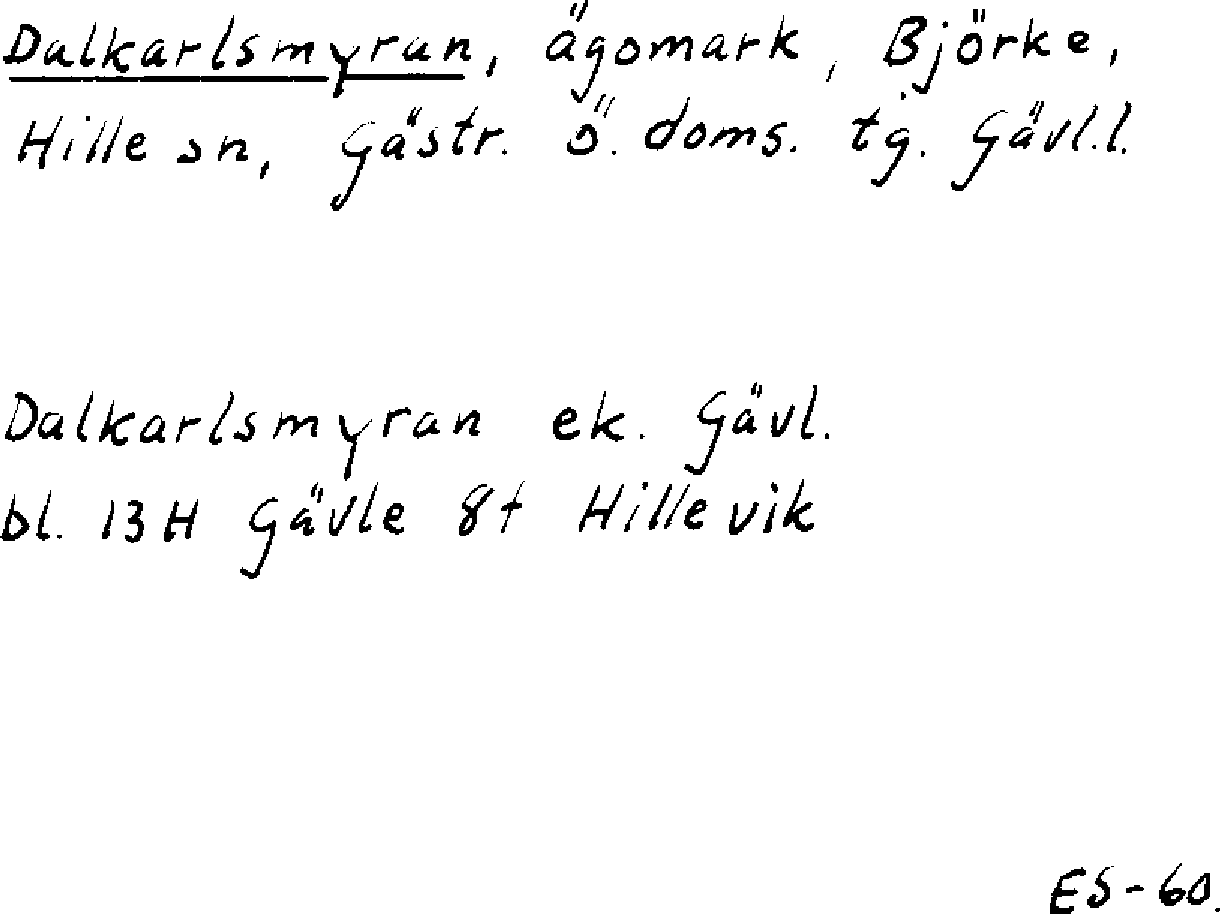 Dalkarlsmyran, ägomark, Björke,
Hille sn, Gästr. ö. doms. tg. Gävl.l.
Dalkarlsmyran ek. Gävl.
bl. 13H Gävle 8f Hillevik
ES-60.